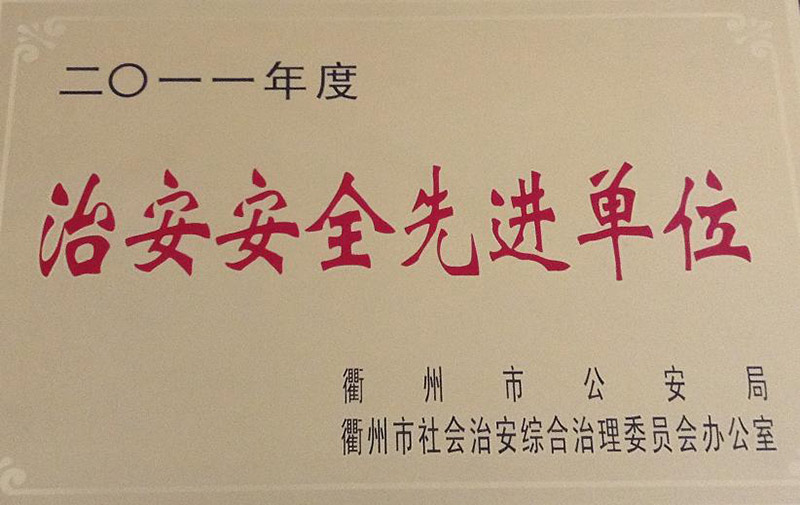 二〇一一年度
治安安全先进单位
衢州市公安局
衢州市社会治安综合治理委员会办公室